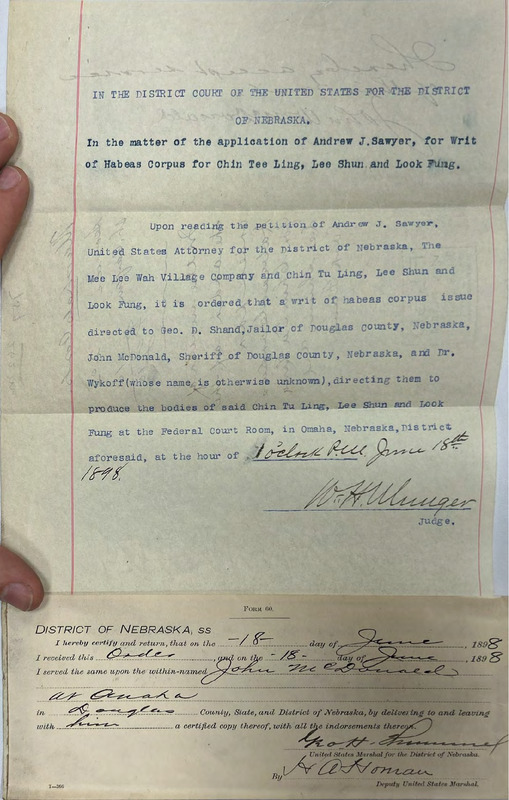 IN THE DISTRICT COURT OF THE UNITED STATES FOR THE DISTRICT
OF NEBRASKA.
In the matter of the application of Andrew J.Sawyer, for Writ
of Habeas Corpus for Chin Tee Ling, Lee Shun and Look Fung.
Upon reading the petition of Andrew J. Sawyer,
United States Attorney for the District of Nebraska, The
Mee Lee Wah Village Company and Chin Tu Ling, Lee Shun and
Look Fung, it is ordered that a writ of habeas corpus issue
directed to Geo. D. Shand,Jailor of Douglas county, Nebraska,
John McDonald, Sheriff of Douglas County, Nebraska, and Dr.
Wykoff(whose name is otherwise unknown),directing them to
produce the bodies of said Chin Tu Ling, Lee Shun and Look
Fung at the Federal Court Room, in Omaha, Nebraska,District
aforesaid, at the hour of 1 o'clock P.M. June 18th
1898.
W.H. Munger
Judge.
FORM 60.
DISTRICT OF NEBRASKA, SS
I hereby certify and return, that on the -18- day of June, 1898
I received this Order and on the -18- day of June, 1898
I served the same upon the within-named John McDonald
at Omaha
in Douglas County, State, and District of Nebraska, by delivering to and leaving
with him a certified copy thereof, with all the indorsements thereon
Geo H.
United States Marshal for the District of Nebraska.
By H A Homan
Deputy United States Marshal.